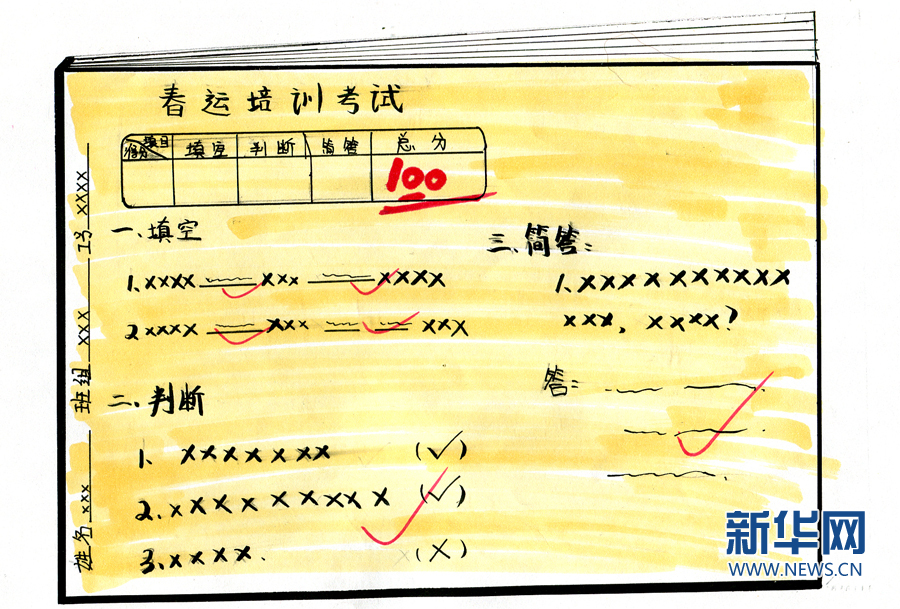 春运培训考试
项目 得分 填空 判断 简答 总分
100
工号 XXXX
班组 XXX
姓名 xxx
一、填空
1、xxxx xxx xxxx
2 xxxx xxx xxx
二、判断
1、xxxxxxx (✓)
2、xxxxxxxxx (✓)
3、xxxx. (X)
三、简答:
1、xxxxxxxxxx
xxx, xxxx?
答:
新华网
WWW.NEWS.CN